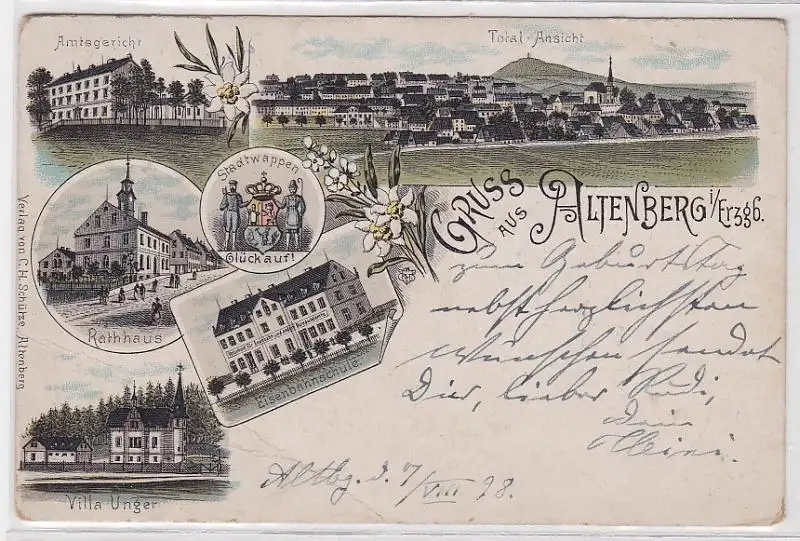 Amtsgericht
Total-Ansicht
Stadtwappen
Glückauf!
Rathhaus
Eisenbahnschule.
Villa Unger
Verlag von C.H. Schütze, Altenberg
GRUSS
AUS
ALTENBERG i/Erzgb.
zum Geburtstag
nebst herzlichsten
Wünschen sendet
Dir, lieber Rudi,
Dein
Heini.
Altbg. d. 7/VIII 98.